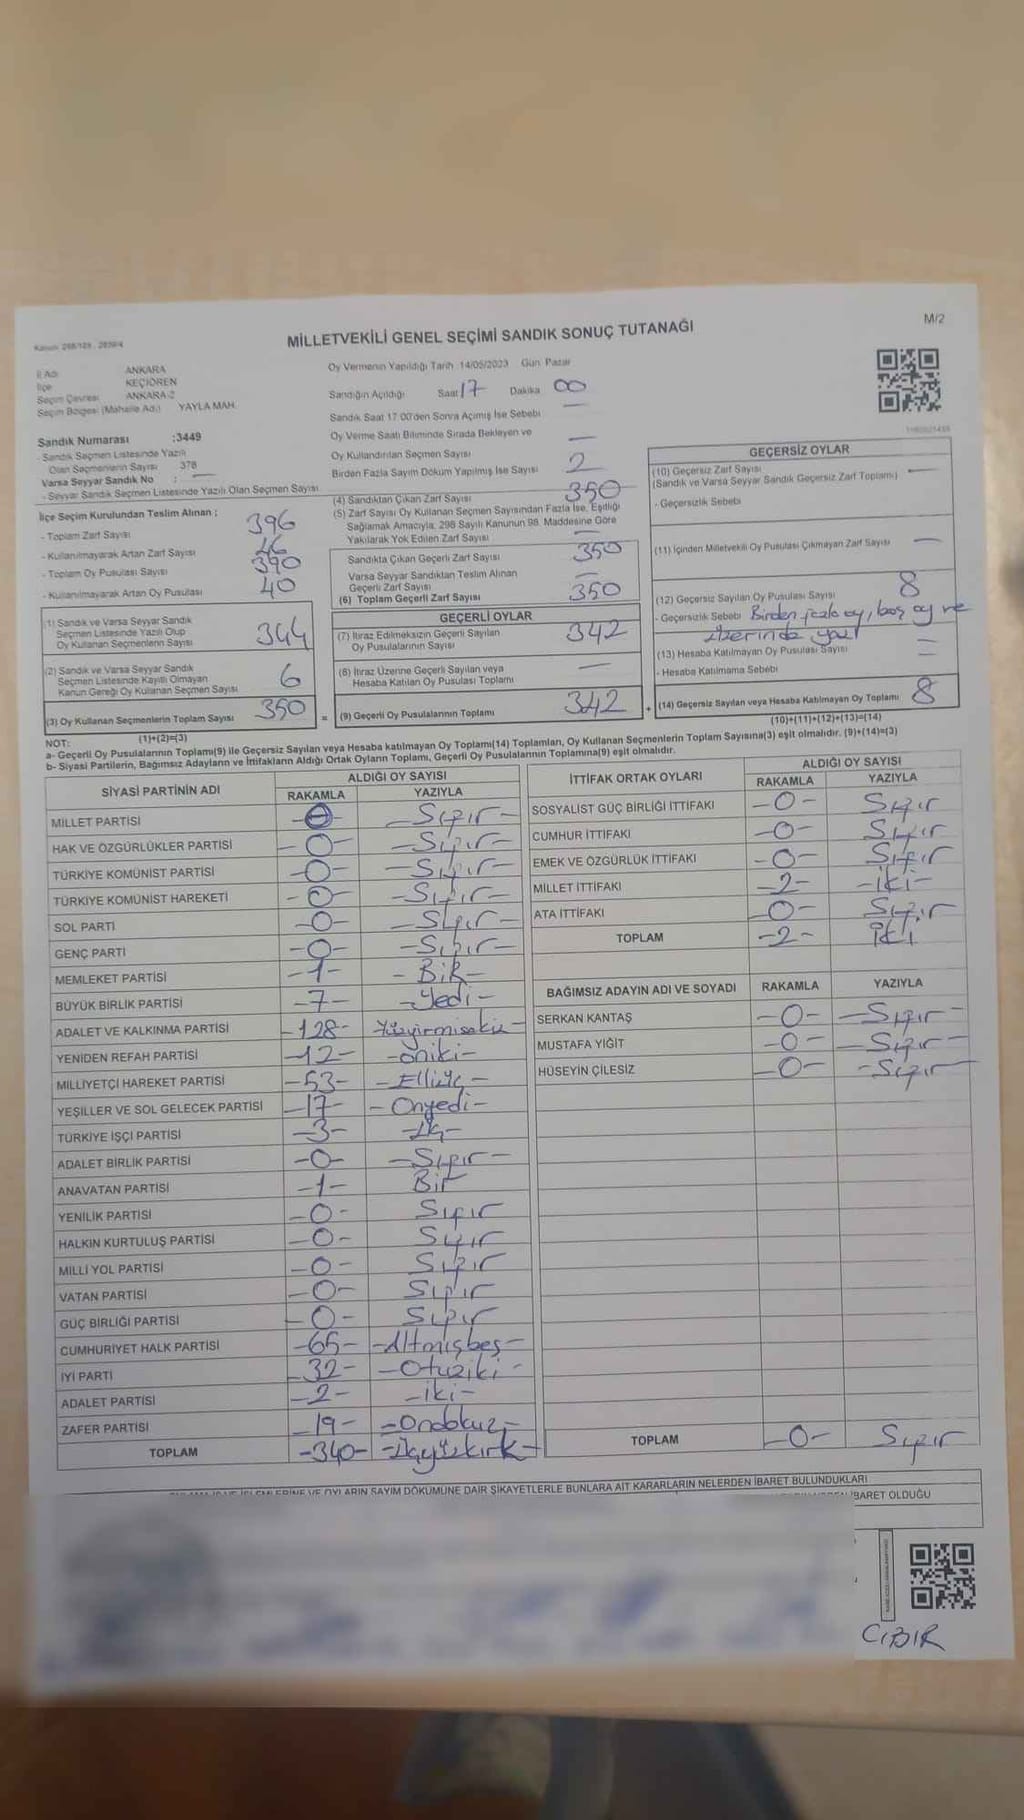 MİLLETVEKİLİ GENEL SEÇİMİ SANDIK SONUÇ TUTANAĞI
M/2
İl Adı ANKARA
İlçe KEÇİÖREN
Seçim Çevresi ANKARA-2
Seçim Bölgesi (Mahalle Adı) YAYLA MAH.
Oy Vermenin Yapıldığı Tarih :14/05/2023 Gün: Pazar
Sandığın Açıldığı Saat 17 Dakika 00
Sandık Saat 17:00'den Sonra Açımış İse Sebebi
Oy Verme Saati Bitiminde Sırada Bekleyen ve
Oy Kullandırılan Seçmen Sayısı —
Birden Fazla Sayım Döküm Yapılmış İse Sayısı 2
Sandık Numarası :3449
- Sandık Seçmen Listesinde Yazılı
Olan Seçmenlerin Sayısı 378
Varsa Seyyar Sandık No : —
- Seyyar Sandık Seçmen Listesinde Yazılı Olan Seçmen Sayısı
İlçe Seçim Kurulundan Teslim Alınan ;
- Toplam Zarf Sayısı 396
- Kullanılmayarak Artan Zarf Sayısı 46
- Toplam Oy Pusulası Sayısı 390
- Kullanılmayarak Artan Oy Pusulası 40
(1) Sandık ve Varsa Seyyar Sandık
Seçmen Listesinde Yazılı Olup
Oy Kullanan Seçmenlerin Sayısı 344
(2) Sandık ve Varsa Seyyar Sandık
Seçmen Listesinde Kayıtlı Olmayan
Kanun Gereği Oy Kullanan Seçmen Sayısı 6
(3) Oy Kullanan Seçmenlerin Toplam Sayısı 350
(1)+(2)=(3)
(4) Sandıktan Çıkan Zarf Sayısı 350
(5) Zarf Sayısı Oy Kullanan Seçmen Sayısından Fazla İse, Eşitliği
Sağlamak Amacıyla, 298 Sayılı Kanunun 98. Maddesine Göre
Yakılarak Yok Edilen Zarf Sayısı —
Sandıkta Çıkan Geçerli Zarf Sayısı 350
Varsa Seyyar Sandıktan Teslim Alınan
Geçerli Zarf Sayısı —
(6) Toplam Geçerli Zarf Sayısı 350
GEÇERLİ OYLAR
(7) İtiraz Edilmeksizin Geçerli Sayılan
Oy Pusulalarının Sayısı 342
(8) İtiraz Üzerine Geçerli Sayılan veya
Hesaba Katılan Oy Pusulası Toplamı —
= (9) Geçerli Oy Pusulalarının Toplamı 342
GEÇERSİZ OYLAR
(10) Geçersiz Zarf Sayısı
(Sandık ve Varsa Seyyar Sandık Geçersiz Zarf Toplamı) —
- Geçersizlik Sebebi
(11) İçinden Milletvekili Oy Pusulası Çıkmayan Zarf Sayısı —
(12) Geçersiz Sayılan Oy Pusulası Sayısı 8
- Geçersizlik Sebebi Birden fazla oy, boş oy ve
üzerinde yazı
(13) Hesaba Katılmayan Oy Pusulası Sayısı —
- Hesaba Katılmama Sebebi —
+ (14) Geçersiz Sayılan veya Hesaba Katılmayan Oy Toplamı 8
(10)+(11)+(12)+(13)=(14)
NOT:
a- Geçerli Oy Pusulalarının Toplamı(9) ile Geçersiz Sayılan veya Hesaba katılmayan Oy Toplamı(14) Toplamları, Oy Kullanan Seçmenlerin Toplam Sayısına(3) eşit olmalıdır. (9)+(14)=(3)
b- Siyasi Partilerin, Bağımsız Adayların ve İttifakların Aldığı Ortak Oyların Toplamı, Geçerli Oy Pusulalarının Toplamına(9) eşit olmalıdır.
SİYASİ PARTİNİN ADI ALDIĞI OY SAYISI
RAKAMLA YAZIYLA
MİLLET PARTİSİ -0- -Sıfır-
HAK VE ÖZGÜRLÜKLER PARTİSİ -0- -Sıfır-
TÜRKİYE KOMÜNİST PARTİSİ -0- -Sıfır-
TÜRKİYE KOMÜNİST HAREKETİ -0- -Sıfır-
SOL PARTİ -0- -Sıfır-
GENÇ PARTİ -0- -Sıfır-
MEMLEKET PARTİSİ -1- -BiR-
BÜYÜK BİRLİK PARTİSİ -7- -Yedi-
ADALET VE KALKINMA PARTİSİ -128- Yüzyirmisekiz-
YENİDEN REFAH PARTİSİ -12- -oniki-
MİLLİYETÇİ HAREKET PARTİSİ -53- -Elliüç-
YEŞİLLER VE SOL GELECEK PARTİSİ -17- -Onyedi-
TÜRKİYE İŞÇİ PARTİSİ -3- -Üç-
ADALET BİRLİK PARTİSİ -0- -Sıfır-
ANAVATAN PARTİSİ -1- Bir
YENİLİK PARTİSİ -0- Sıfır
HALKIN KURTULUŞ PARTİSİ -0- Sıfır
MİLLİ YOL PARTİSİ -0- Sıfır
VATAN PARTİSİ -0- Sıfır
GÜÇ BİRLİĞİ PARTİSİ -0- Sıfır
CUMHURİYET HALK PARTİSİ -65- -Altmışbeş-
İYİ PARTİ -32- -Otuziki-
ADALET PARTİSİ -2- -iki-
ZAFER PARTİSİ -19- -Ondokuz-
TOPLAM -340- -Üçyüzkırk-
İTTİFAK ORTAK OYLARI ALDIĞI OY SAYISI
RAKAMLA YAZIYLA
SOSYALİST GÜÇ BİRLİĞİ İTTİFAKI -0- Sıfır
CUMHUR İTTİFAKI -0- Sıfır
EMEK VE ÖZGÜRLÜK İTTİFAKI -0- Sıfır
MİLLET İTTİFAKI -2- -iki-
ATA İTTİFAKI -0- Sıfır
TOPLAM -2- iki
BAĞIMSIZ ADAYIN ADI VE SOYADI RAKAMLA YAZIYLA
SERKAN KANTAŞ -0- -Sıfır-
MUSTAFA YİĞİT -0- -Sıfır-
HÜSEYİN ÇİLESİZ -0- -Sıfır
TOPLAM -0- Sıfır
OYLARIN SAYIM DÖKÜMÜNE DAİR ŞİKAYETLERLE BUNLARA AİT KARARLARIN NELERDEN İBARET BULUNDUKLARI
İBARET OLDUĞU
CIBIR